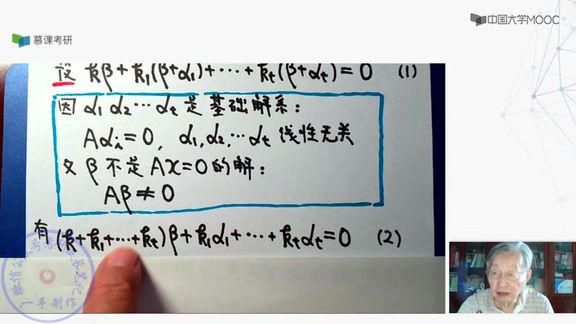 中国大学MOOC
慕课考研
设 kβ+k₁(β+α₁)+⋯+kₜ(β+αₜ)=0 (1)
因 α₁ α₂ ⋯ αₜ 是基础解系:
Aαᵢ=0, α₁,α₂,⋯αₜ 线性无关
又 β 不是 Ax=0 的解:
Aβ≠0
有 (k+k₁+⋯+kₜ)β+k₁α₁+⋯+kₜαₜ=0 (2)
一手制作